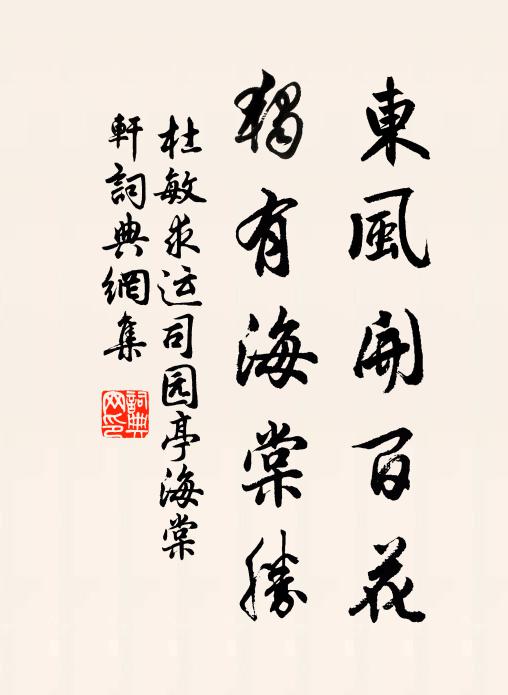 東風開百花
獨有海棠勝
杜敏求运司园亭海棠
軒詞典網集
詞典
网印